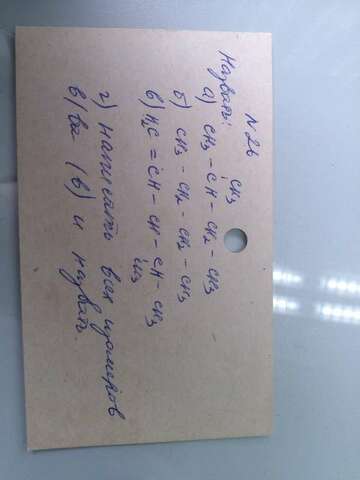 N 26
Назвать:
CH3
а) CH3 - CH - CH2 - CH3
б) CH3 - CH2 - CH2 - CH3
в) H2C = CH - CH - CH - CH3
CH3
г) написать всех изомеров
в/ва (в) и назвать.